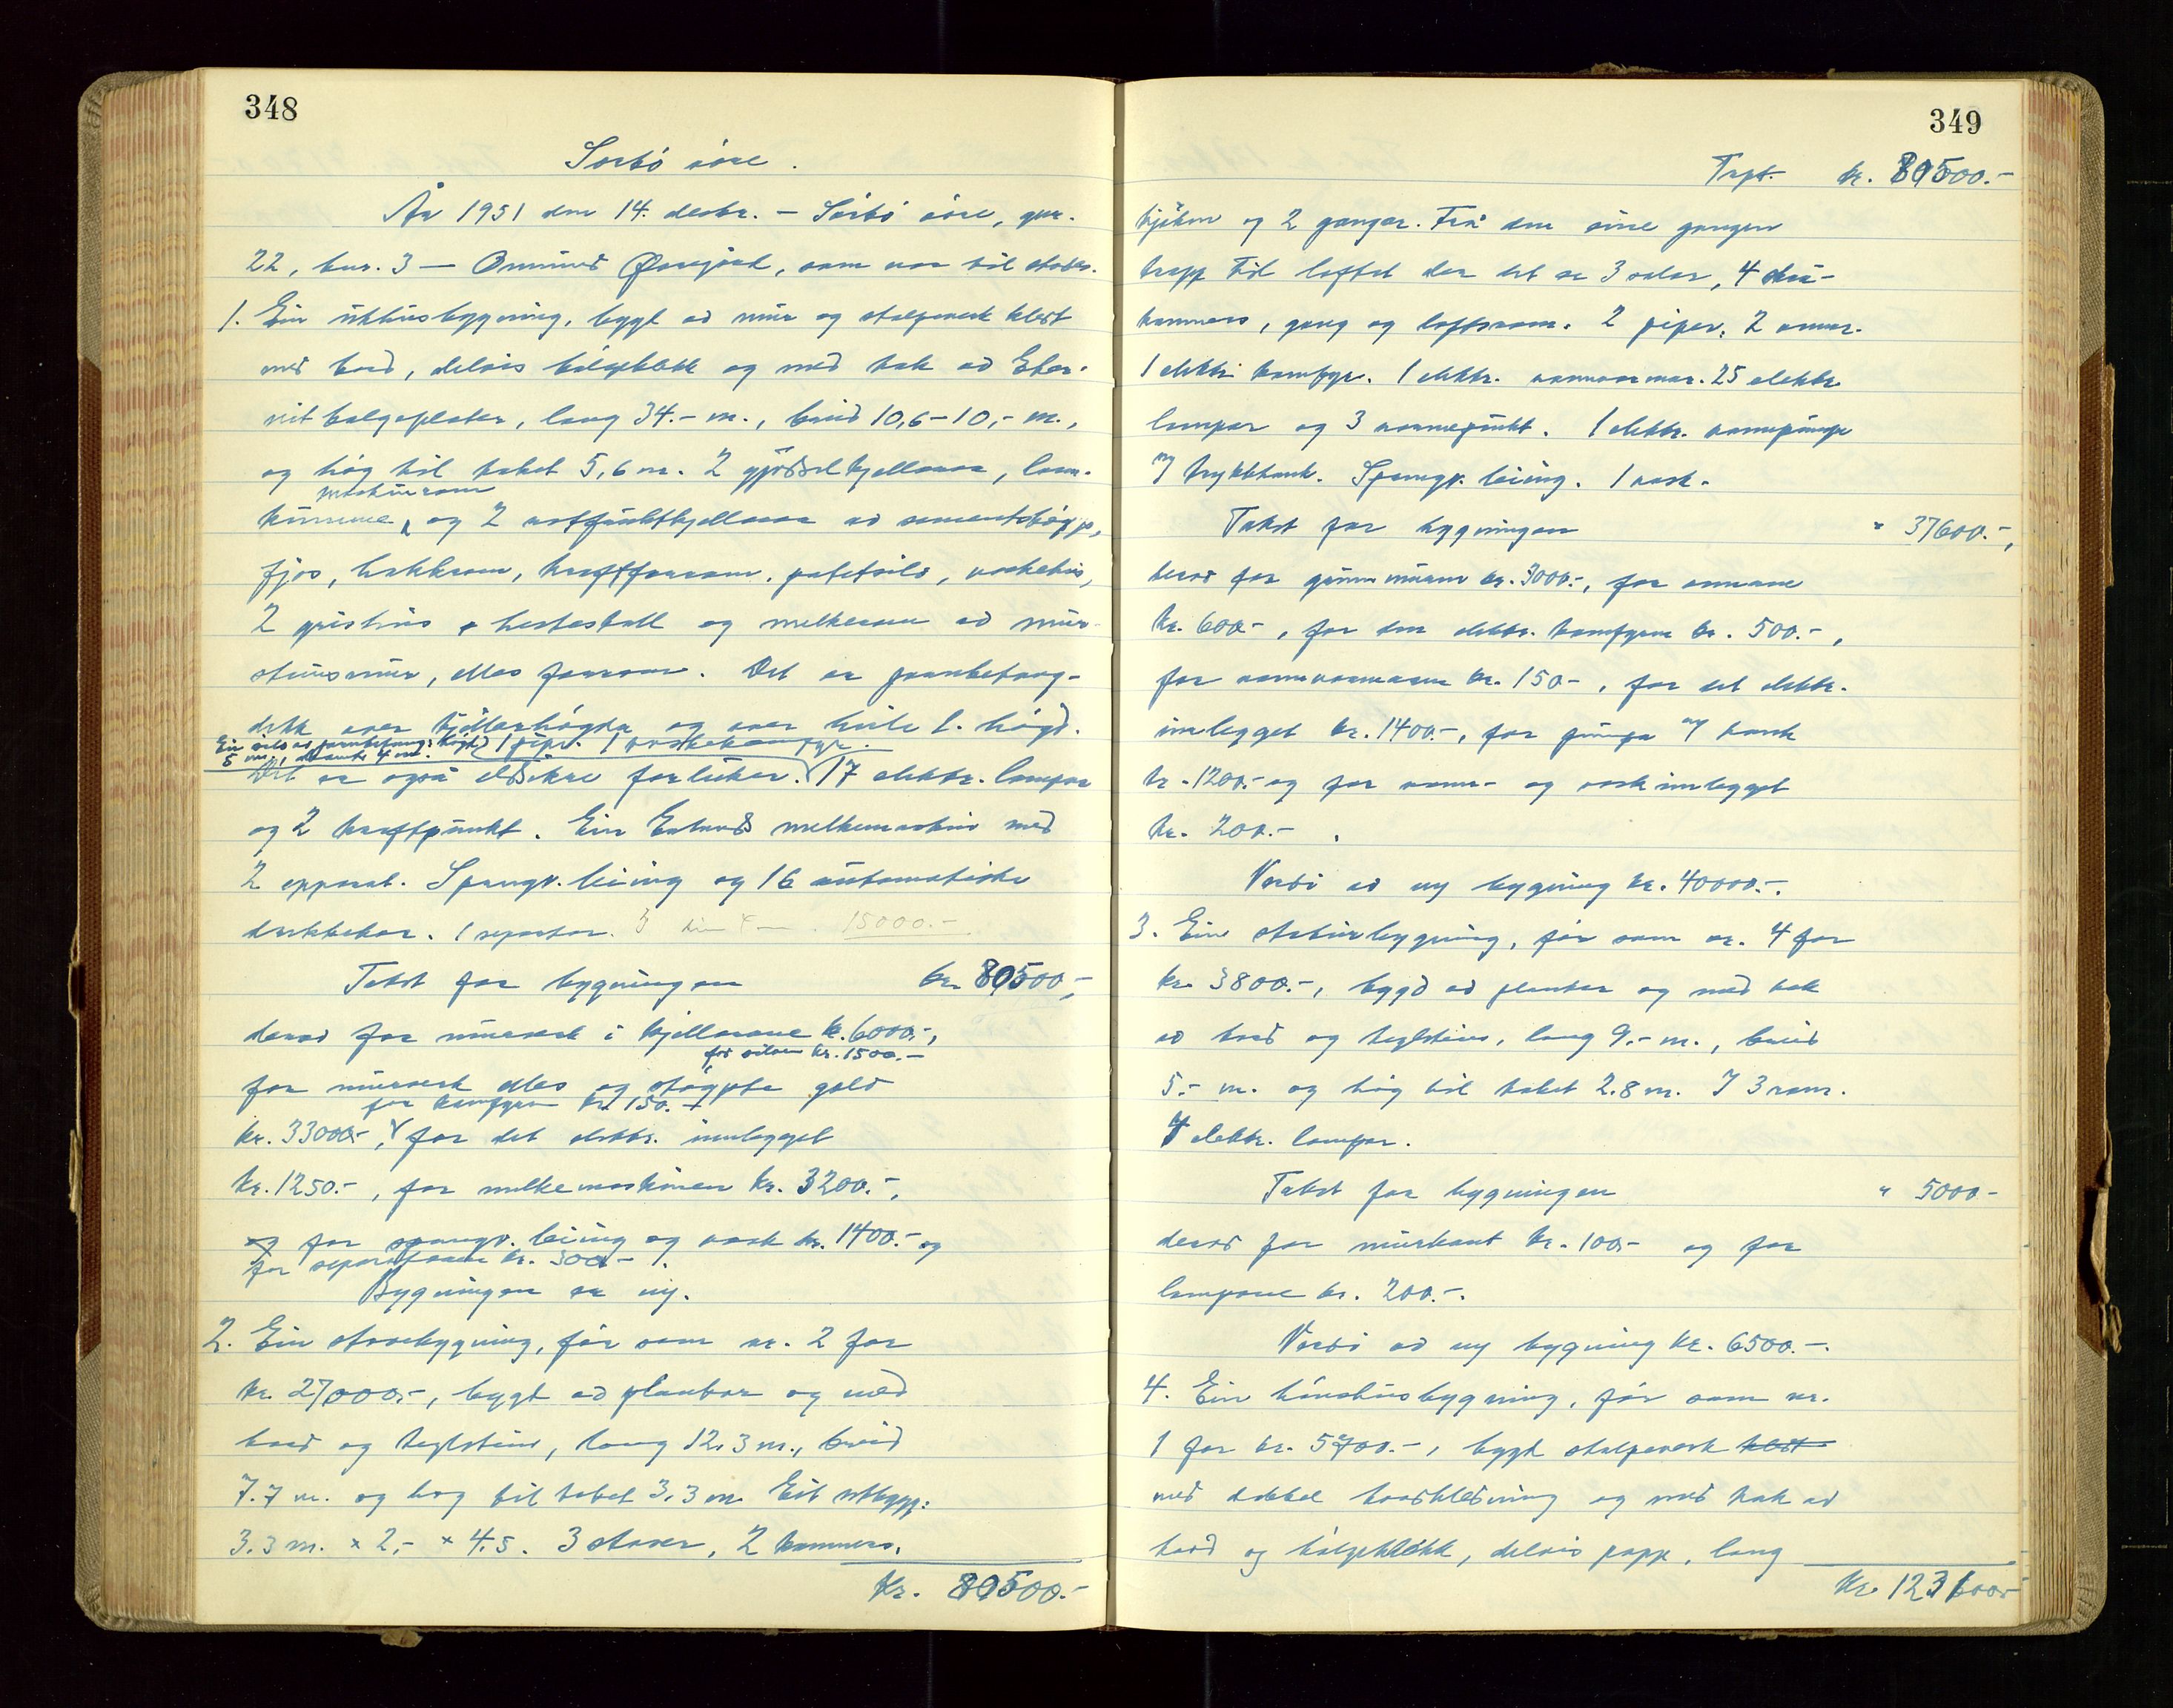 348
Sørbø øvre.
År 1951 den 14. desbr. – Sørbø øvre, gnr.
22, bnr. 3 — Ommund , som var til stades.
1. Ein uthusbygning, bygt av mur og stolpeverk kledt
med bord, delvis bølgeblikk og med tak av Eter-
nit bølgeplater, lang 34.- m., breid 10,6-10,- m.,
og høg til taket 5,6 m. 2 gjødselkjellarar, land-
kumme, maskinrom og 2 rotfruktkjellarar av sementstøyp,
fjos, hakkrom, kraftforrom, potetsilo, vaskehus,
2 grishus, hestestall og melkerom av mur-
steinsmur, elles forrom. Det er jarnbetong-
dekk over kjellarhøgda og over heile 1. høgd.
Ein silo av jarnbetong: høgd
5 m., diameter 4 m. 1 pipe. 1 vaskekomfyr.
Det er også eldsikre forluker. 17 elektr. lampor
og 2 kraftpunkt. Ein melkemaskin med
2 apparat. Springv. leiing og 16 automatiske
drikkekar. 1 separator. 3 15000.-
Takst for bygningen kr. 80500.-,
derav for murverk i kjellarane kr. 6000.-,
for siloen kr. 1500.-
for murverk elles og støypte golv
for komfyren kr. 150.-
kr. 33000.-, for det elektr. innlegget
kr. 1250.-, for melkemaskinen kr. 3200.-,
og for springv. leiing og vask kr. 1400.- og
for separatoren kr. 300.-.
Bygningen er ny.
2. Ein stovebygning, før som nr. 2 for
kr. 27000.-, bygt av plankar og med
bord og teglstein, lang 12,3 m., breid
7.7 m. og høg til taket 3,3 m. Eit utbygg:
3.3 m. x 2,- x 4.5. 3 stover, 2 kammers,
Kr. 80500.-
349
Trpt. kr. 80500.-
kjøken og 2 gangar. Frå den eine gangen
trapp til loftet der det er 3 salar, 4 skrå-
kammers, gang og loftsrom. 2 piper, 2 omnar.
1 elektr. komfyr. 1 elektr. vannvarmar. 25 elektr.
lampor og 3 varmepunkt. 1 elektr. vannpumpe
m/ trykktank. Springv. leiing. 1 vask.
Takst for bygningen " 37600.-,
derav for grunnmuren kr. 3000.-, for omnane
kr. 600.-, for den elektr. komfyren kr. 500.-,
for vannvarmaren kr. 150.-, for det elektr.
innlegget kr. 1400.-, for pumpa m/ tank
kr. 1200.- og for vann- og vaskinnlegget
kr. 200.-.
Verdi av ny bygning kr. 40000.-.
3. Ein bygning, før som nr. 4 for
kr. 3800.-, bygd av plankar og med tak
av bord og teglstein, lang 9.- m., breid
5.- m. og høg til taket 2.8 m. I 3 rom.
4 elektr. lampor.
Takst for bygningen " 5000.-
derav for murkant kr. 100.- og for
lampone kr. 200.-.
Verdi av ny bygning kr. 6500.-.
4. Ein hønshusbygning, før som nr.
1 for kr. 5700.-, bygt stolpeverk kledt
med dobbel bordkledning og med tak av
bord og bølgeblikk, delvis papp, lang
Kr. 123100.-